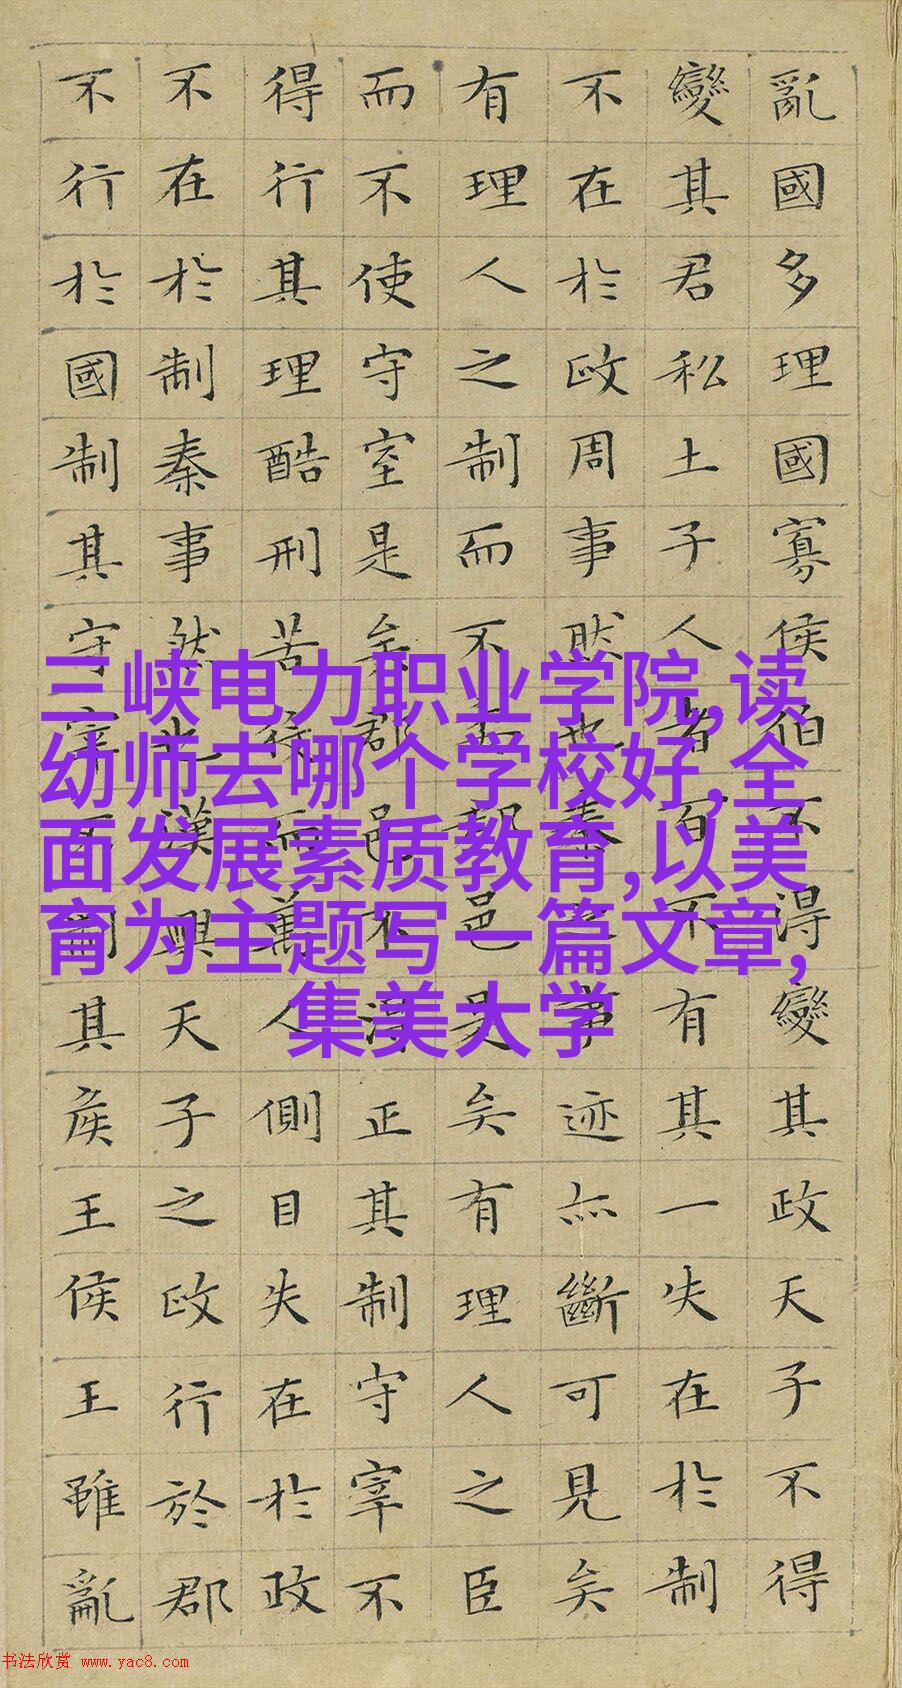 亂國多理國寡侯伯不得變其政天子不得
變其君私土子人者百不有其一失在於制
不在於政周事然也秦之事迹亦斷可見矣
有理人之制而不委郡邑是矣有理人之臣
而不使守室是矣郡邑不得正其制守宰不
得行其理酷刑苦役而萬人側目失在於政
不在於制秦事然也漢興天子之政行於郡
不行於國制其守宰不制其侯王侯王雖亂
三峡电力职业学院,读
幼师去哪个学校好,全
面发展素质教育,以美
育为主题写一篇文章,
集美大学
书法欣赏 www.yac8.com